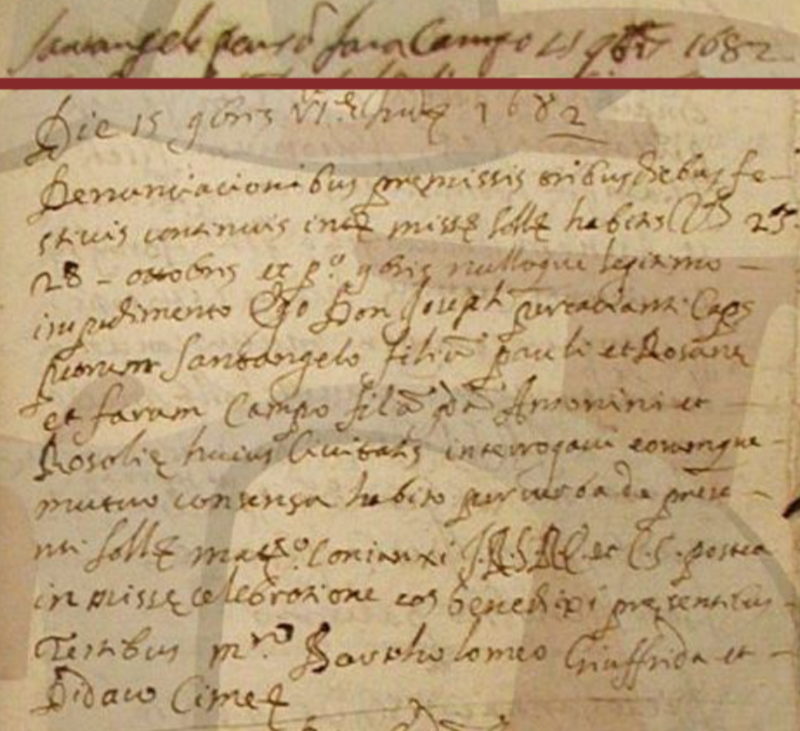 Santangelo con Sara Campo 15 9bris 1682
Die 15 9bris VI.e Ind. 1682
Denunciacionibus premissis tribus diebus fe-
stivis continuis intr missę sollę habitis V. D. 25
28 - ottobris et p.º 9bris nulloque legitimo -
impedimento Ego Don Joseph
Petrum Santangelo filiũ pauli et Rosanę
et Saram Campo filã qdã Antonini et
Rosolię huius Civitatis interrogavi eorumque -
mutuo consensu habito per verba de prese -
nti sollę matr.º Coniunxi J.R.S.R.E. et C.S. postea
in missę celebratione eos benedixi presentibus -
Testibus m.ro Bartholomeo Giuffrida et -
Didaco Cimeę